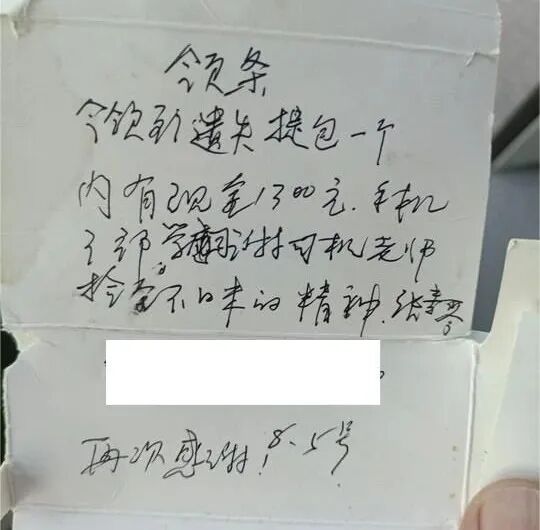 领条
今领到遗失提包一个
内有现金1300元.手机
1部 谢司机老师
拾金不昧的精神.张
再次感谢!8.5号